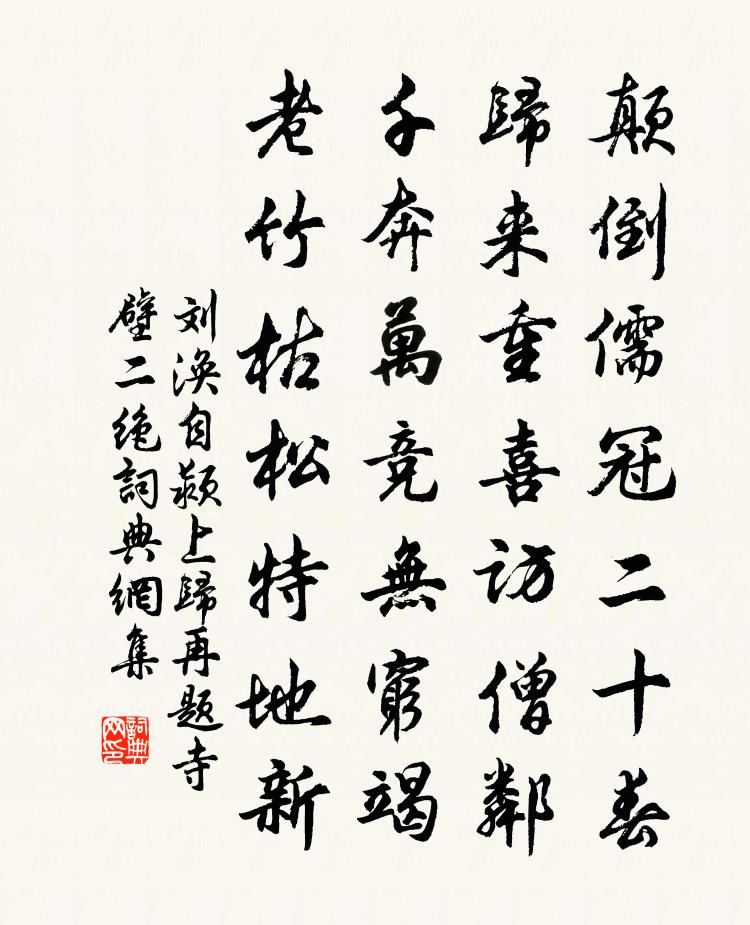 顛倒儒冠二十春
歸来重喜訪僧鄰
千奔萬竞無窮竭
老竹枯松特地新
刘渙自颍上歸再题寺
壁二绝詞典網集
詞典
网印